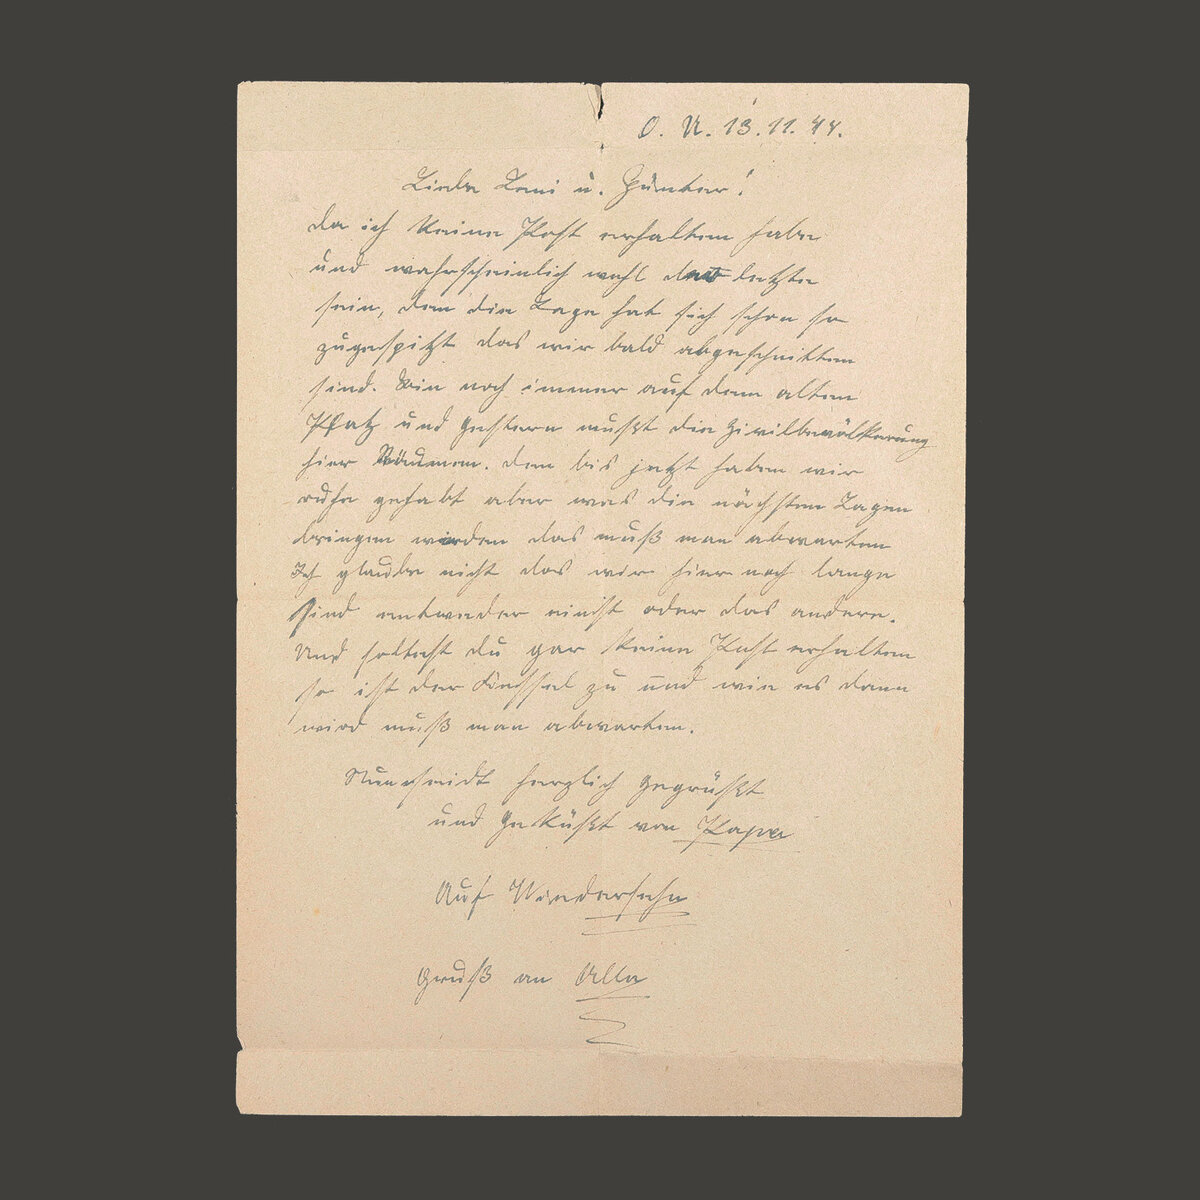 O. U. 13.11.44.
Liebe Leni u. Günter!
da ich keine Post erhalten habe
und wahrscheinlich wohl das letzte
sein, den die Lage hat sich schon so
zugespitzt das wir bald abgeschnitten
sind. Bin noch immer auf dem alten
Platz und gestern mußt die Zivilbevölkerung
hier Räumen. den bis jetzt haben wir
ruhe gehabt aber was die nächsten Tagen
bringen werden das muß man abwarten
Ich glaube nicht das wir hier noch lange
sind entweder einst oder das andere.
Und solltest du gar keine Post erhalten
so ist der zu und wie es dann
wird muß man abwarten.
Nun seidt herzlich Gegrüßt
und Geküßt von Papa
Auf Wiedersehn
Gruß an Alle